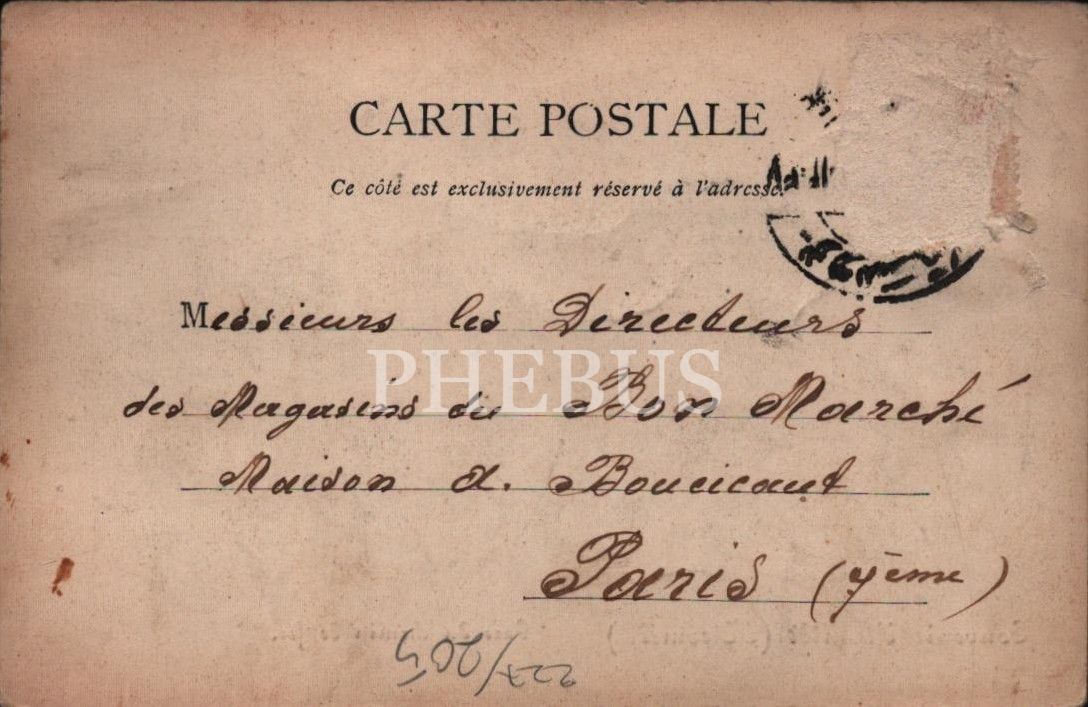 CARTE POSTALE
Ce côté est exclusivement réservé à l'adresse.
Messieurs les Directeurs
des Magasins du Bon Marché
PHEBUS
Maison A. Boucicaut
Paris (7ème)